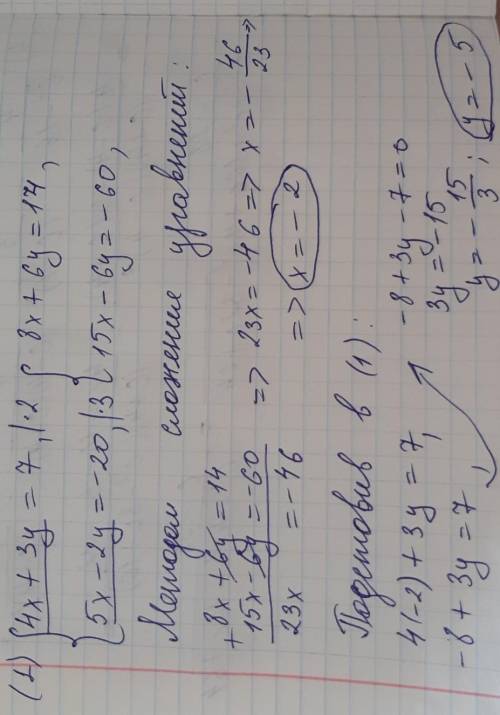 (1) { 4x + 3y = 7, |·2 { 8x + 6y = 14,
{ 5x − 2y = −20, |·3 { 15x − 6y = −60,
Методом сложение уравнений:
+ 8x + 6y = 14
15x − 6y = −60 => 23x = −46 => x = − 46/23 =>
23x = −46 => x = −2
Подставив в (1):
4(−2) + 3y = 7, −8 + 3y − 7 = 0
−8 + 3y = 7, 3y = −15
y = − 15/3; y = −5